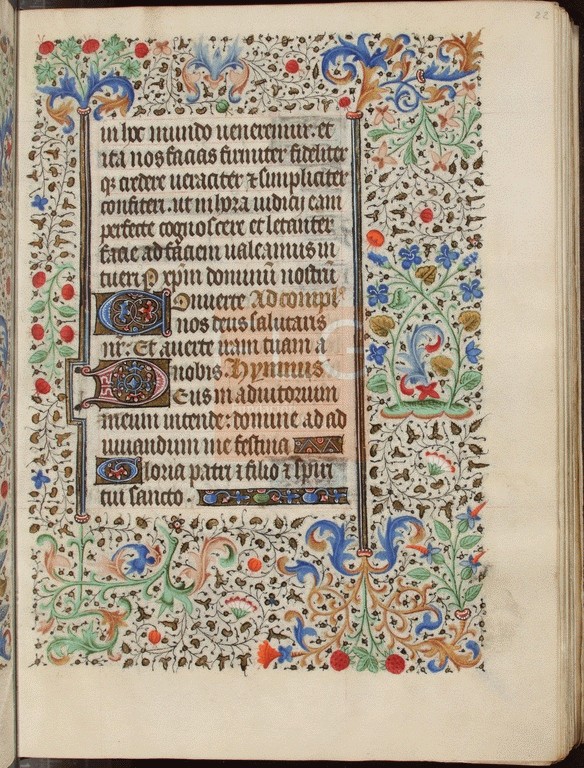 22
in hoc mundo veneremur. et
ita nos facias firmiter fideliter
q3 credere veraciter ⁊ simpliciter
confiteri. ut in hora iudicij eam
perfecte cognoscere et letanter
facie ad faciem valeamus in
tueri P xp̄m dominū nostrū
Conuerte Ad compl᷑
nos deus salutaris
nr̄: Et auerte iram tuam a
nobis Hymnus
Deus in adiutorium
meum intende: domine ad ad
iuuandum me festina
Gloria patri ⁊ filio ⁊ spiri
tui sancto.